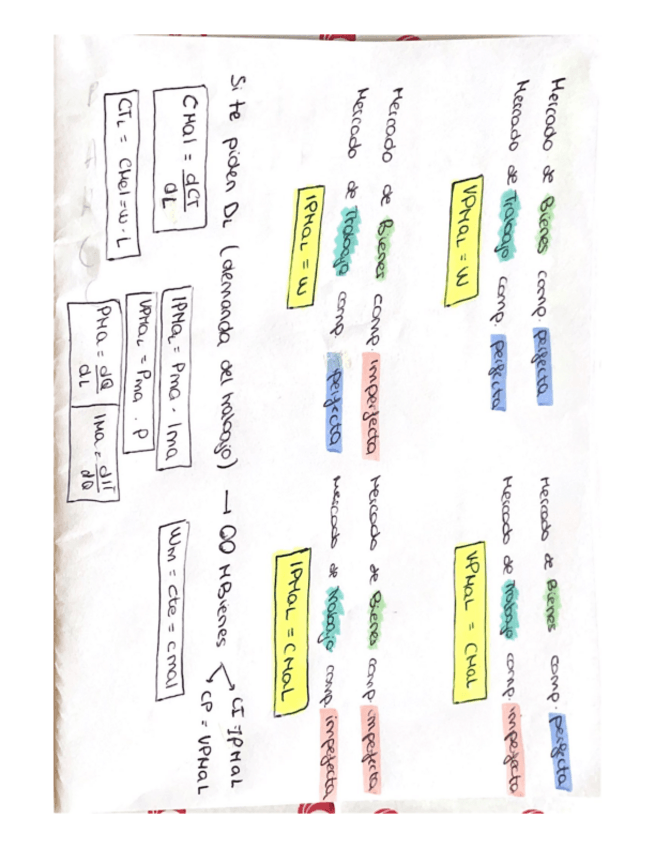 Mercado de Bienes comp. perfecta
Mercado de Trabajo comp. perfecta
VPMaL = W
Mercado de Bienes comp. perfecta
Mercado de Trabajo comp. imperfecta
VPMaL = CMaL
Mercado de Bienes comp. imperfecta
Mercado de Trabajo comp. perfecta
IPMaL = W
Mercado de Bienes comp. imperfecta
Mercado de Trabajo comp. imperfecta
IPMaL = CMaL
Si te piden DL (demanda del trabajo) → OJO MBienes
CI = IPMaL
CP = VPMaL
CMal = dCT / dL
CTL = CMel = w · L
IPMaL = Pma · Ima
VPMaL = Pma · P
PMa = dQ / dL
IMa = dIT / dQ
Wm = cte = cmal